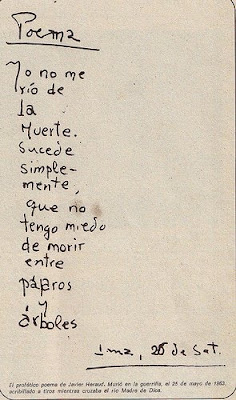 Poema
Yo no me
río de
la
Muerte.
Sucede
simple-
mente,
que no
tengo miedo
de morir
entre
pájaros
y
árboles
Lima, 25 de Set.
El profético poema de Javier Heraud. Murió en la guerrilla, el 25 de mayo de 1963,
acribillado a tiros mientras cruzaba el río Madre de Dios.